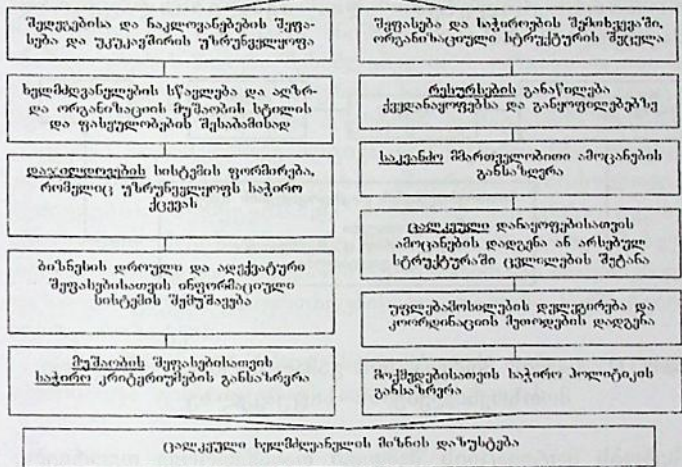 შედეგებისა და ნაკლოვანებების შეფა-
სება და უკუკავშირის უზრუნველყოფა
ხელმძღვანელების სწავლება და აღზრ-
და ორგანიზაციის მუშაობის სტილის
და ფასეულობების შესაბამისად
დაჯილდოვების სისტემის ფორმირება,
რომელიც უზრუნველყოფს საჭირო
ქცევას
ბიზნესის დროული და ადექვატური
შეფასებისათვის ინფორმაციული
სისტემის შემუშავება
მუშაობის შეფასებისათვის
საჭირო კრიტერიუმების განსაზრვრა
შეფასება და საჭიროების შემთხვევაში,
ორგანიზაციული სტრუქტურის შეცვლა
რესურსების განაწილება
ქვედანაყოფებსა და განყოფილებებზე
საკვანძო მმართველობითი ამოცანების
განსაზღვრა
ცალკეული დანაყოფებისათვის
ამოცანების დადგენა ან არსებულ
სტრუქტურაში ცვლილების შეტანა
უფლებამოსილების დელეგირება და
კოორდინაციის მეთოდების დადგენა
მოქმედებისათვის საჭირო პოლიტიკის
განსაზრვრა
ცალკეული ხელმძღვანელის მიზნის დაზუსტება